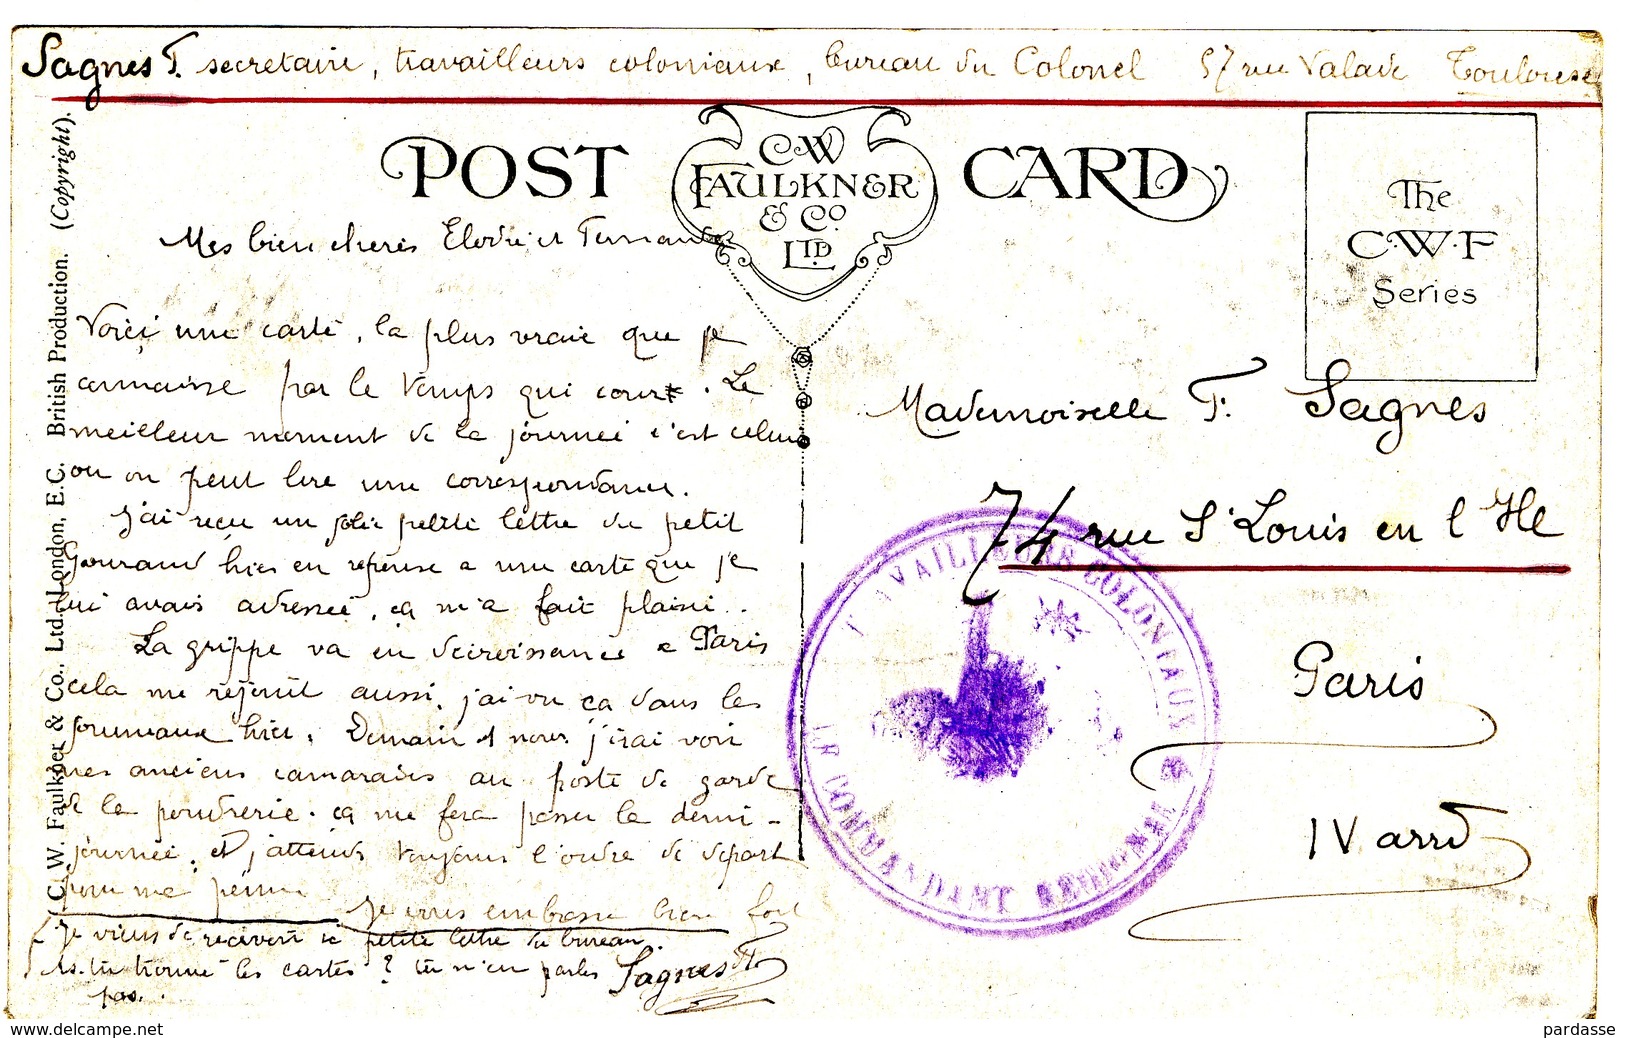 Sagnes F. secretaire, travailleurs coloniaux, bureau du Colonel 57 rue Valade Toulouse
POST CARD
C.W.
FAULKNER
& Co.
LTD.
The
C.W.F
Series
C. W. Faulkner & Co., Ltd. London, E.C. British Production. (Copyright).
Mes bien cheries Elodie et Fernande
Voici une carte, la plus vraie que je
connaisse par le temps qui court. Le
meilleur moment de la journeé c'est celui
ou on peut lire une correspondance.
J'ai reçu un jolie petite lettre du petit
Gouraud hier en reponse a une carte que je
lui avais adresseé, ça m'a fait plaisir.
La grippe va en decroissance a Paris
cela me rejouit aussi, j'ai vu ça dans les
journaux hier. Demain 1 nov. j'irai voir
mes anciens camarades au poste de garde
de la poudrerie. ça me fera passer la demi-
journeé. et j'attends toujours l'ordre de depart
pour me
Je vous embrasse bien fort
Je viens de recevoir ta petite lettre du bureau.
As-tu trouvé les cartes ? tu n'en parles
pas.
Sagnes F.
Mademoiselle F. Sagnes
74 rue St Louis en l'Ile
Paris
IV arrd
TRAVAILLEURS COLONIAUX
LE COMMANDANT REGIONAL
www.delcampe.net
pardasse